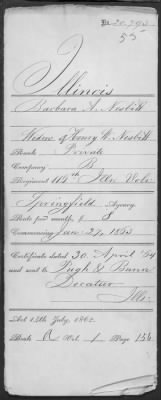 20,793
55
Illinois
Barbara A. Nesbitt
Widow of Henry W. Nesbitt
Rank Private
Company B
Regiment 115th Ills. Vols.
Springfield Agency
Rate per month, $ 8
Commencing Jan. 29, 1863
Certificate dated 30 April '64
and sent to Pugh & Bunn
Decatur
Ills.
Act 14th July, 1862.
Book A Vol. 1 Page 156